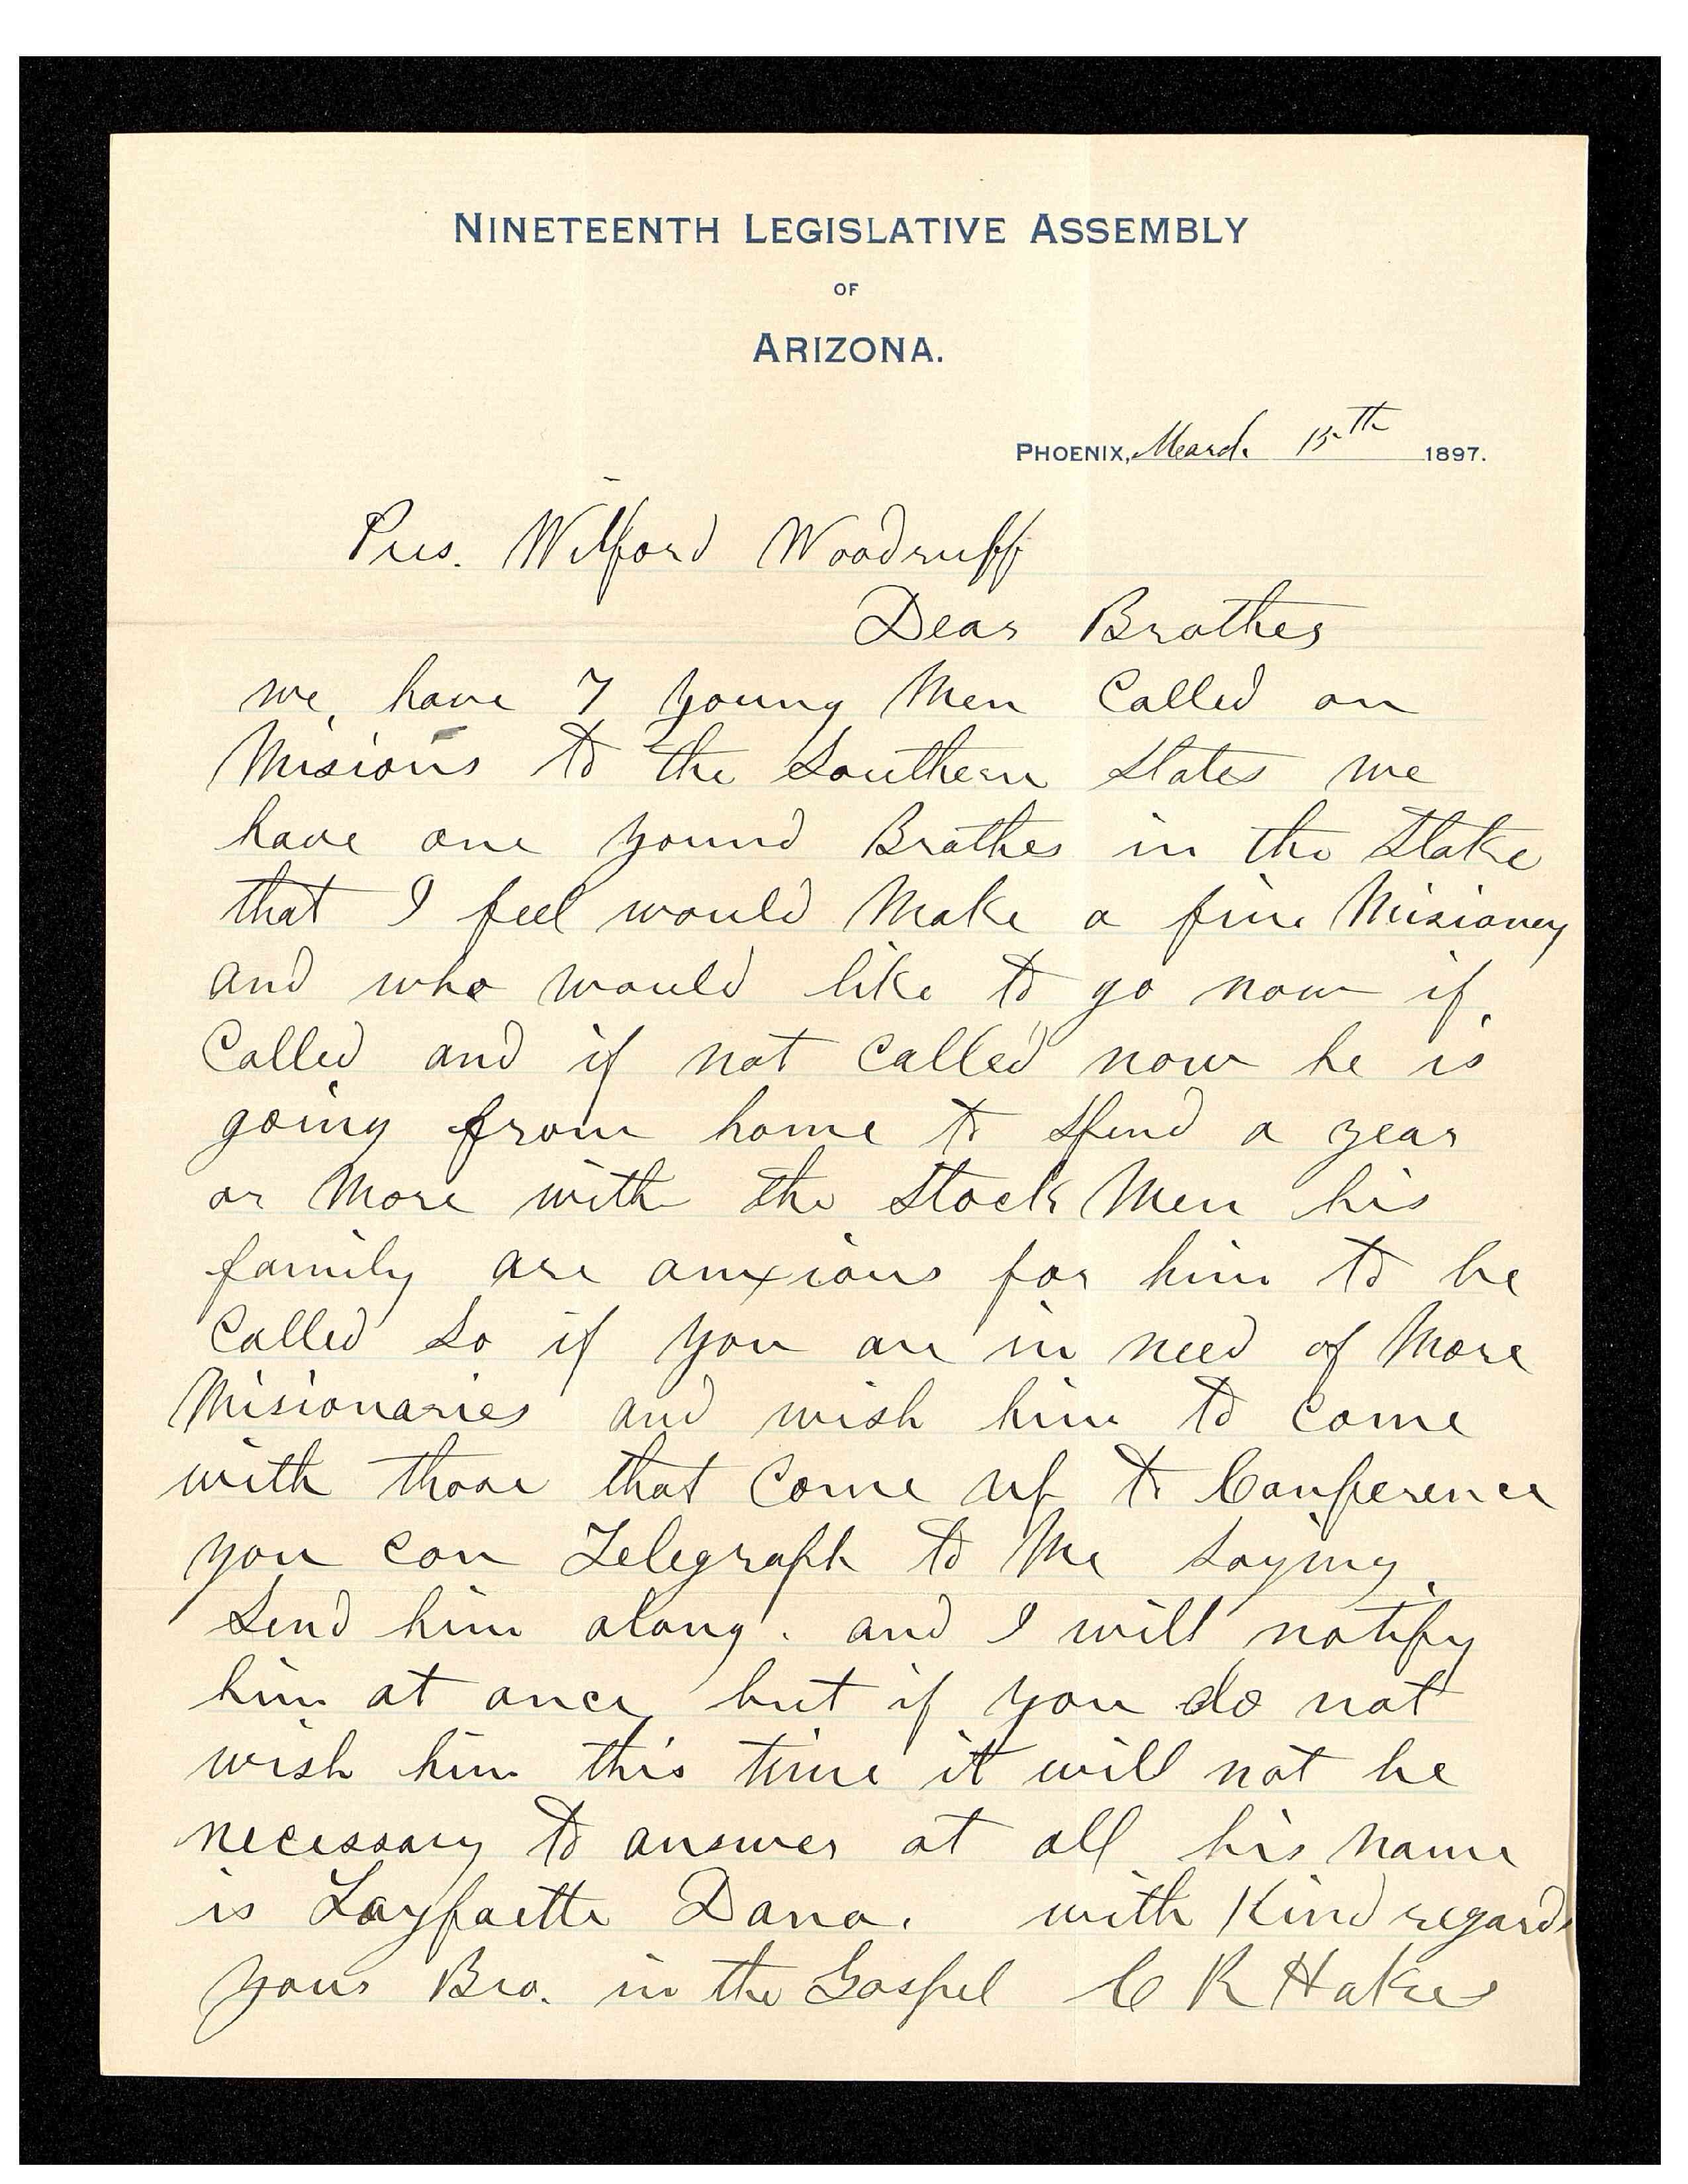 NINETEENTH LEGISLATIVE ASSEMBLY
OF
ARIZONA.
PHOENIX, March 15th 1897.
Pres. Wilford Woodruff
Dear Brother
we have 7 young Men Called on
Misions to the Southern States we
have one yound Brother in the Stake
that I feel would Make a fine Misionery
and who would like to go now if
Called and if not called now he is
going from home to Spend a year
or More with the Stock Men his
family are anxious for him to be
Called So if you are in need of More
Misionaries and wish him to Come
with those that Come up to Conference
you can Telegraph to Me Saying
Send him along. and I will notify
him at once but if you do not
wish him this time it will not be
necessary to answer at all his name
is Layfaette Dana. with Kind regards
your Bro. in the Gospel C R Hakes